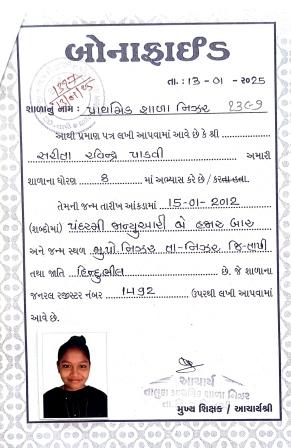 બોનાફાઈડ
તા. : 13 - 01 - 2025
શાળાનું નામ : પ્રાથમિક શાળા નિઝર
આથી પ્રમાણ પત્ર લખી આપવામાં આવે છે કે શ્રી
સરીતા રવિન્દ્ર પાડવી અમારી
શાળાના ધોરણ 8 માં અભ્યાસ કરે છે / કરતા હતા.
તેમની જન્મ તારીખ આંકડામાં 15-01-2012
(શબ્દોમાં) પંદરમી જાન્યુઆરી બે હજાર બાર
અને જન્મ સ્થળ મુ.પો. નિઝર તા-નિઝર જિ-તાપી
તથા જાતિ હિન્દુભીલ છે. જે શાળાના
જનરલ રજીસ્ટર નંબર 1492 ઉપરથી લખી આપવામાં
આવે છે.
આચાર્ય
તાલુકા પ્રાથમિક શાળા નિઝર
મુખ્ય શિક્ષક / આચાર્યશ્રી